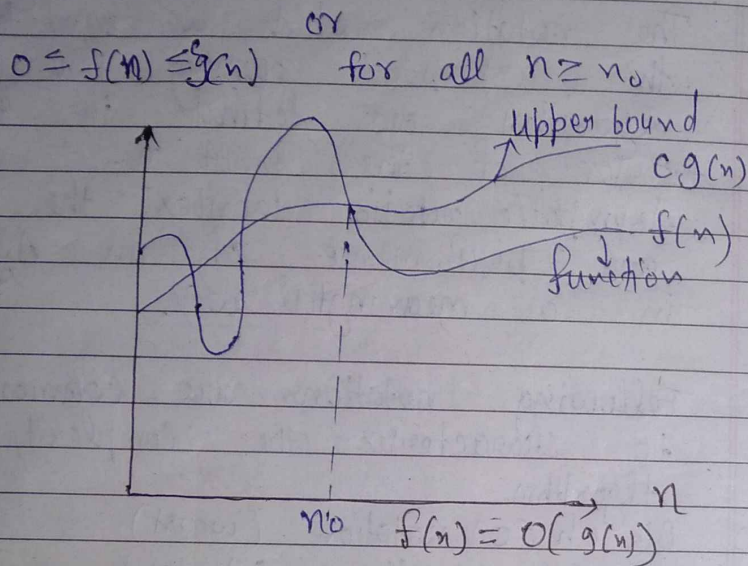 or
0 ≤ f(n) ≤ cg(n) for all n ≥ n₀
upper bound
c g(n)
f(n)
function
n
n₀
f(n) = O(g(n))